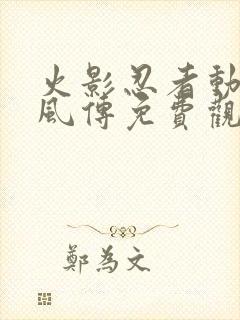 火影忍者動
風傳免費觀
鄭為文